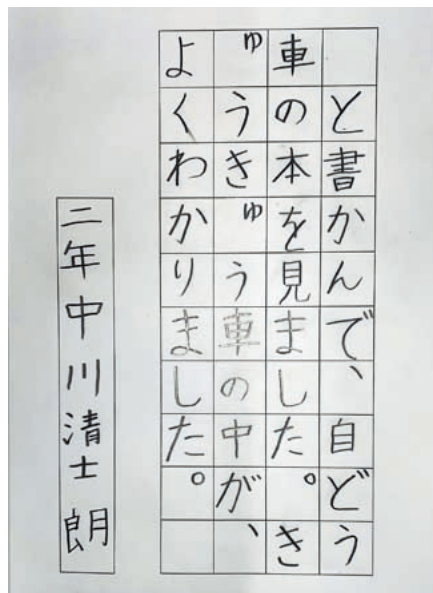 と書かんで、自どう
車の本を見ました。き
ゅうきゅう車の中が、
よくわかりました。
二年中川清士朗